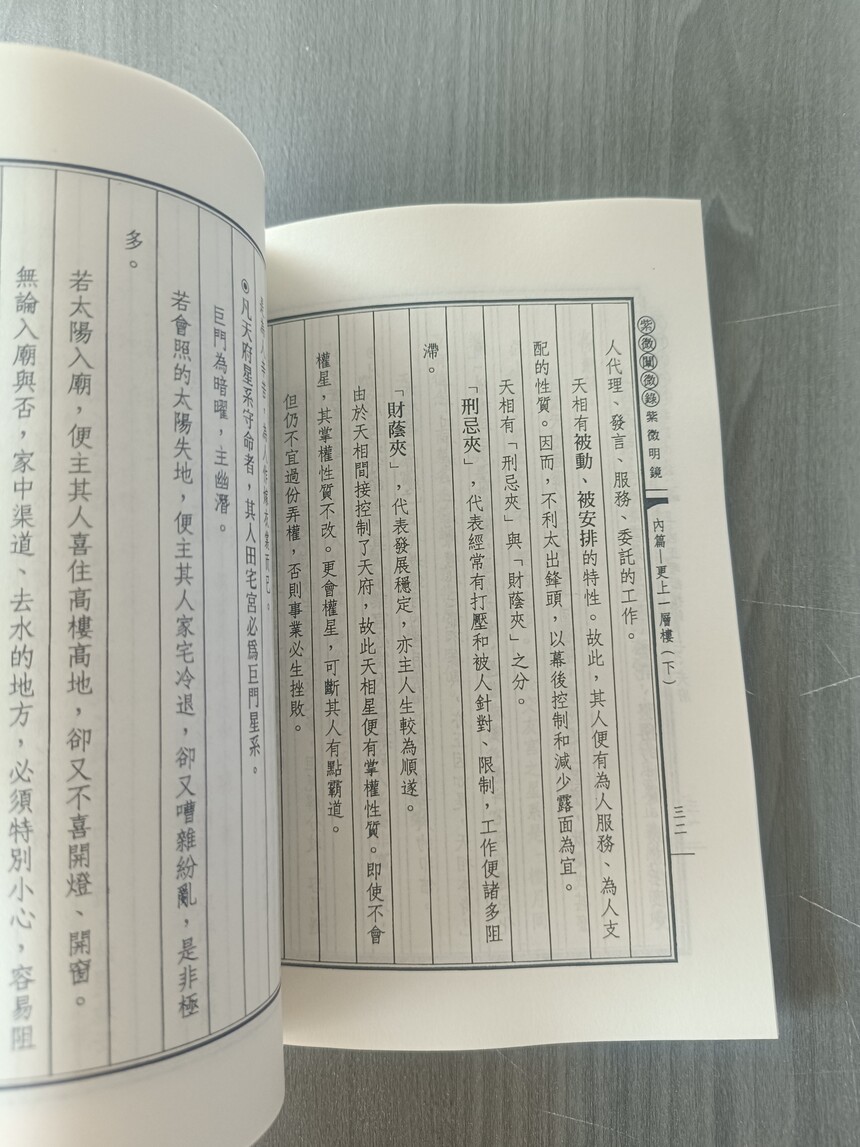 紫微闡微錄 紫微明鏡
內篇—更上一層樓（下）
三二
人代理、發言、服務、委託的工作。
天相有被動、被安排的特性。故此，其人便有為人服務、為人支
配的性質。因而，不利太出鋒頭，以幕後控制和減少露面為宜。
天相有「刑忌夾」與「財蔭夾」之分。
「刑忌夾」，代表經常有打壓和被人針對、限制，工作便諸多阻
滯。
「財蔭夾」，代表發展穩定，亦主人生較為順遂。
由於天相間接控制了天府，故此天相星便有掌權性質。即使不會
權星，其掌權性質不改。更會權星，可斷其人有點霸道。
但仍不宜過份弄權，否則事業必生挫敗。
◉凡天府星系守命者，其人田宅宮必為巨門星系。
巨門為暗曜，主幽潛。
若會照的太陽失地，便主其人家宅冷退，卻又嘈雜紛亂，是非極
多。
若太陽入廟，便主其人喜住高樓高地，卻又不喜開燈、開窗。
無論入廟與否，家中渠道、去水的地方，必須特別小心，容易阻